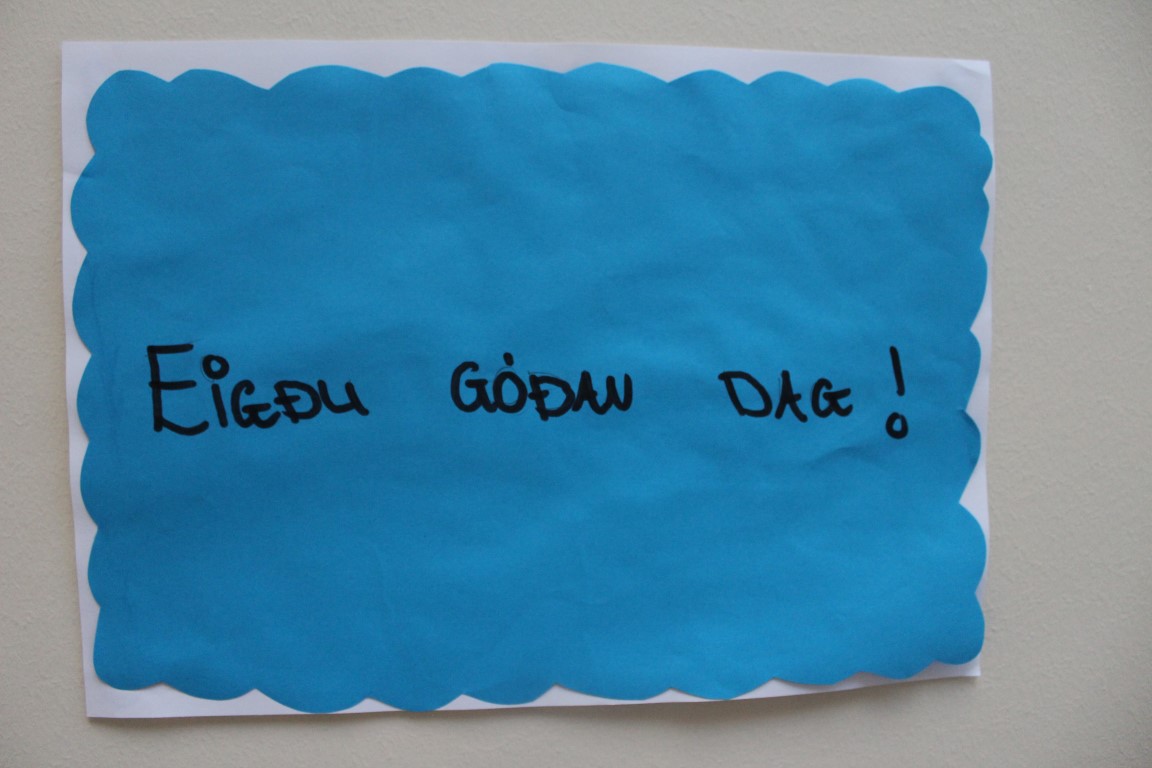 Eigðu góðan dag!